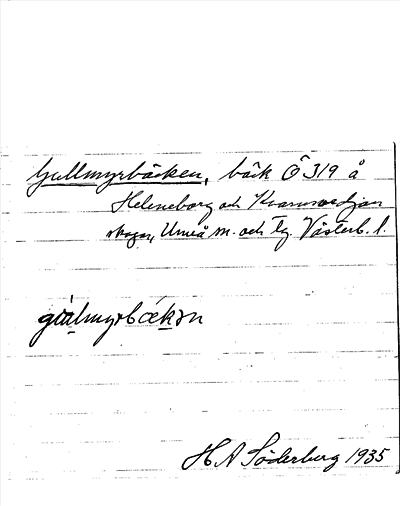 Gullmyrbäcken, bäck Ö 319 å
Heleneborg och Kvarnsvedjan
skogar, Umeå sn. och tg. Västerb. l.
gullmyrbäkən
H A Söderberg 1935